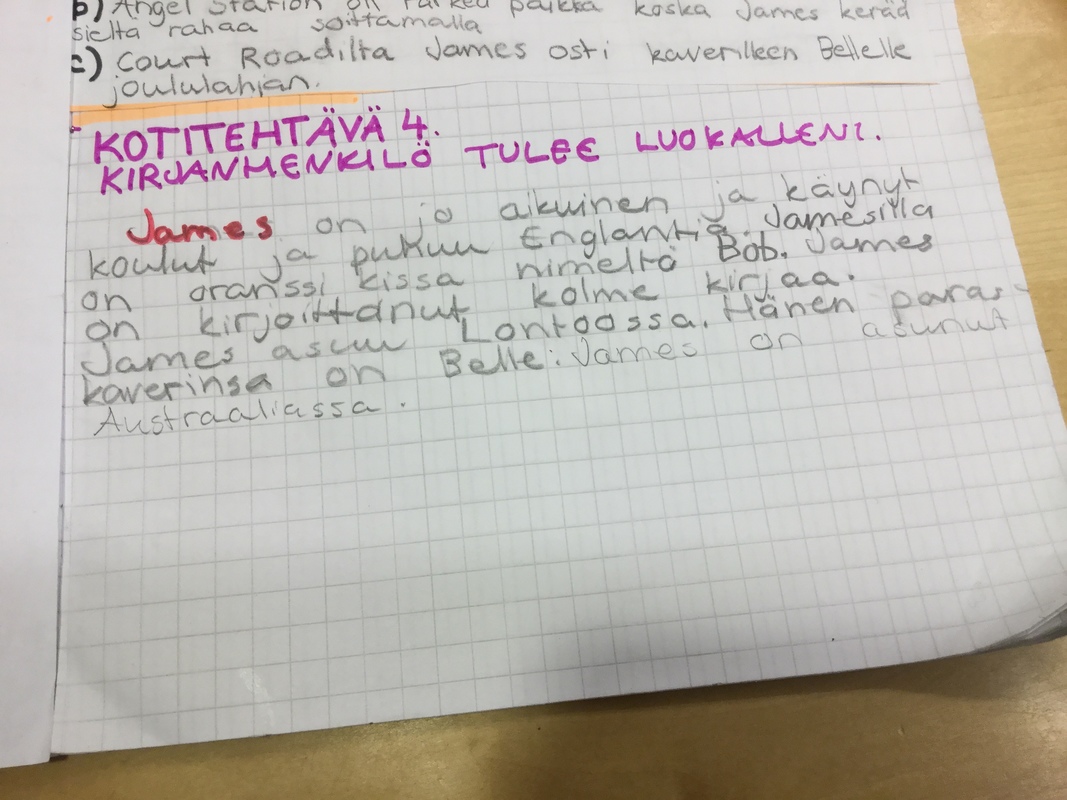 b) Angel Station on tärkeä paikka koska James kerää
sieltä rahaa soittamalla
c) Court Roadilta James osti kaverilleen Bellelle
joululahjan.
KOTITEHTÄVÄ 4.
KIRJANHENKILÖ TULEE LUOKALLENI.
James on jo aikuinen ja käynyt
koulut ja puhuu Englantia. Jamesilla
on oranssi kissa nimeltä Bob. James
on kirjoittanut kolme kirjaa.
James asuu Lontoossa. Hänen paras
kaverinsa on Belle. James on asunut
Austraaliassa.